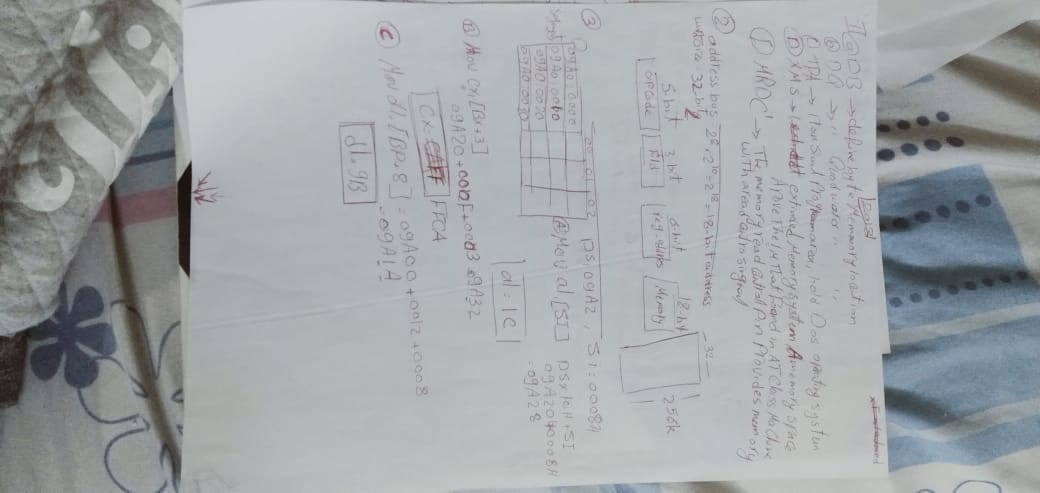 2013
I) a) DB → define byte Memmory location
b) DQ → " Quadword " "
c) TPA → Transiant Program area, hold Dos opeating system
D) XMS → extinded Memory system A memory space
Apove The 1M That Found in AT Class Machine
MRDC' → The memory read Control Pin Provides memory
with a read Contro singnal
② address bus 2⁸ · 2¹⁰ = 2¹⁸ = 18-bit address
size = 32-bit
5-bit 3-bit 18-bit 32
OPCode Fld reg-addres Memory 256k
③ 00 01 02 DS: 09A2, SI: 0008H
09A0:0000
09A0:0010
09A0:0020
09A0:0030
Ⓐ Mov al, [SI] DS x 10H + SI
09A20+0008H
= 09A28
al = 1C
Ⓑ Mov Cx, [Bx+3]
09A20 + 000F + 0003 = 09A32
Cx = FFCA
Ⓒ Mov dl, [BP+8] = 09A00 + 0012 + 0008
= 09A1A
dl = 9B